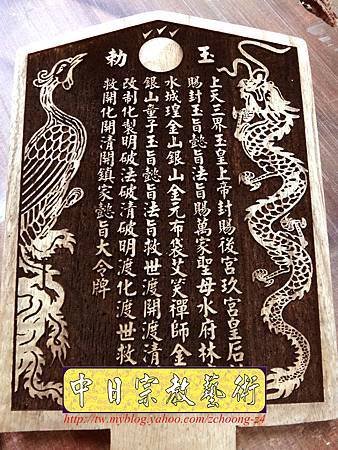 玉
勅
上天三界玉皇上帝封賜後宮玖宮皇后
賜封玉旨懿旨法旨賜萬家聖母水府林
水城瑝金山銀山金元布袋艾笑禪師金
銀山童子玉旨懿旨法旨救世渡開渡清
改制化製明破法破清破明渡化渡世救
救開化開清開鎮家懿旨大令牌
中日宗教藝術
http://tw.myblog.yahoo.com/zchoong-z4